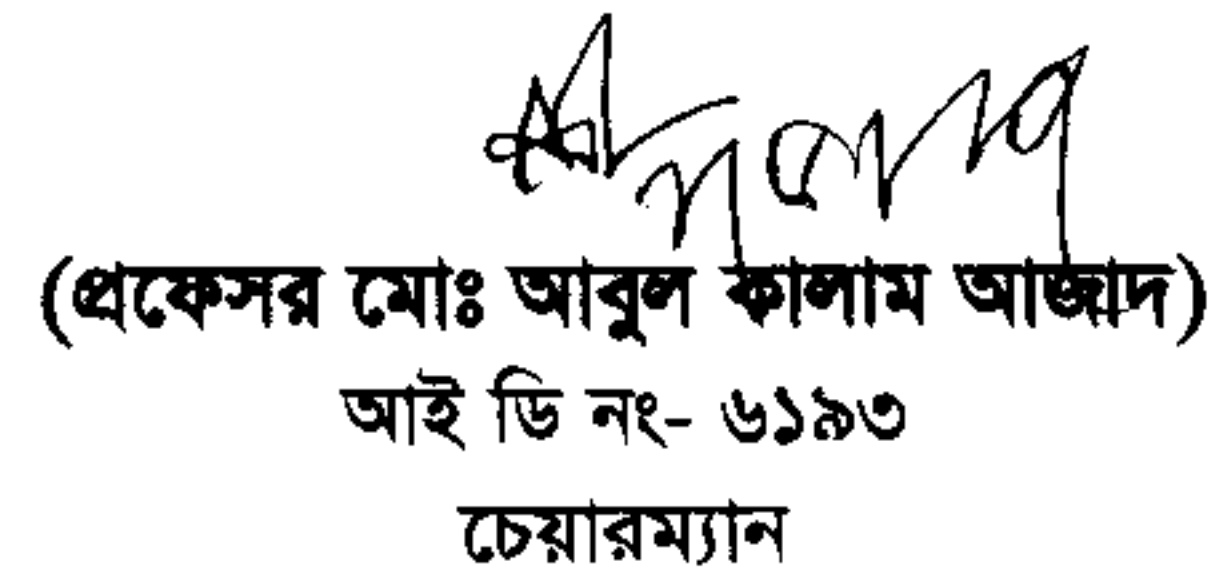 (প্রফেসর মোঃ আবুল কালাম আজাদ)
আই ডি নং- ৬১৯৩
চেয়ারম্যান